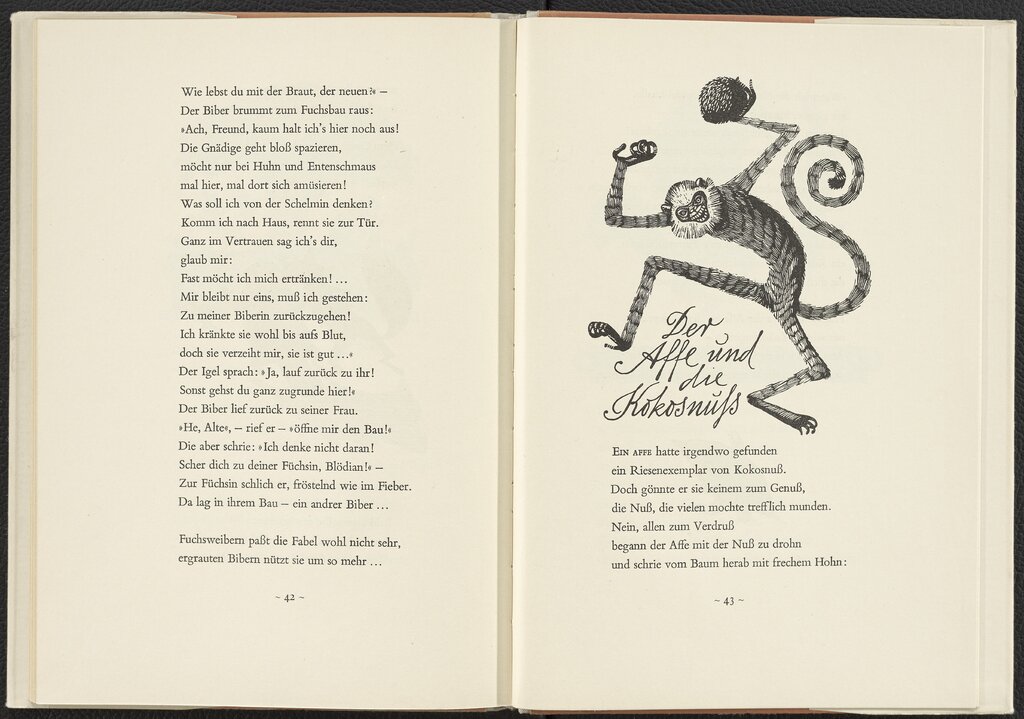 Wie lebst du mit der Braut, der neuen?« –
Der Biber brummt zum Fuchsbau raus:
»Ach, Freund, kaum halt ich's hier noch aus!
Die Gnädige geht bloß spazieren,
möcht nur bei Huhn und Entenschmaus
mal hier, mal dort sich amüsieren!
Was soll ich von der Schelmin denken?
Komm ich nach Haus, rennt sie zur Tür.
Ganz im Vertrauen sag ich's dir,
glaub mir:
Fast möcht ich mich ertränken! ...
Mir bleibt nur eins, muß ich gestehen:
Zu meiner Biberin zurückzugehen!
Ich kränkte sie wohl bis aufs Blut,
doch sie verzeiht mir, sie ist gut ...«
Der Igel sprach: »Ja, lauf zurück zu ihr!
Sonst gehst du ganz zugrunde hier!«
Der Biber lief zurück zu seiner Frau.
»He, Alte«, – rief er – »öffne mir den Bau!«
Die aber schrie: »Ich denke nicht daran!
Scher dich zu deiner Füchsin, Blödian!« –
Zur Füchsin schlich er, fröstelnd wie im Fieber.
Da lag in ihrem Bau – ein andrer Biber ...
Fuchsweibern paßt die Fabel wohl nicht sehr,
ergrauten Bibern nützt sie um so mehr ...
~ 42 ~
Der
Affe und
die
Kokosnuß
EIN AFFE hatte irgendwo gefunden
ein Riesenexemplar von Kokosnuß.
Doch gönnte er sie keinem zum Genuß,
die Nuß, die vielen mochte trefflich munden.
Nein, allen zum Verdruß
begann der Affe mit der Nuß zu drohn
und schrie vom Baum herab mit frechem Hohn:
~ 43 ~